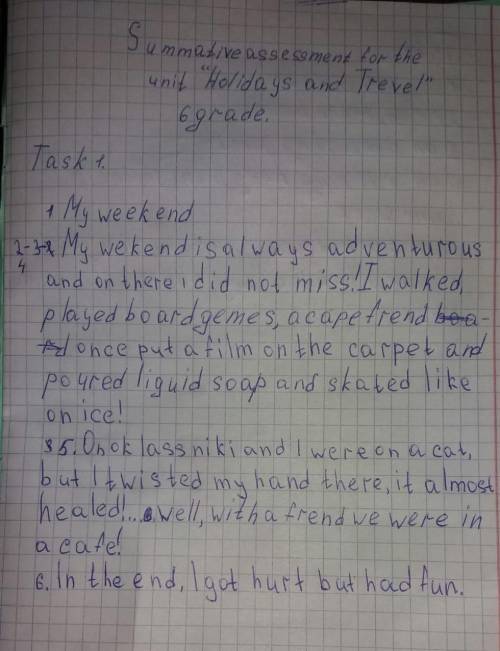 Summative assessment for the
unit "Holidays and Trevel"
6 grade.
Task 1.
1 My weekend
2-3-4 My wekend is always adventurous
and on there i did not miss! I walked,
played board gemes, a cape frend
once put a film on the carpet and
poured liguid soap and skated like
on ice!
5. Onoklassniki and I were on a cat,
but I twisted my hand there, it almost
healed!... well, with a frend we were in
a cafe!
6. In the end, I got hurt but had fun.